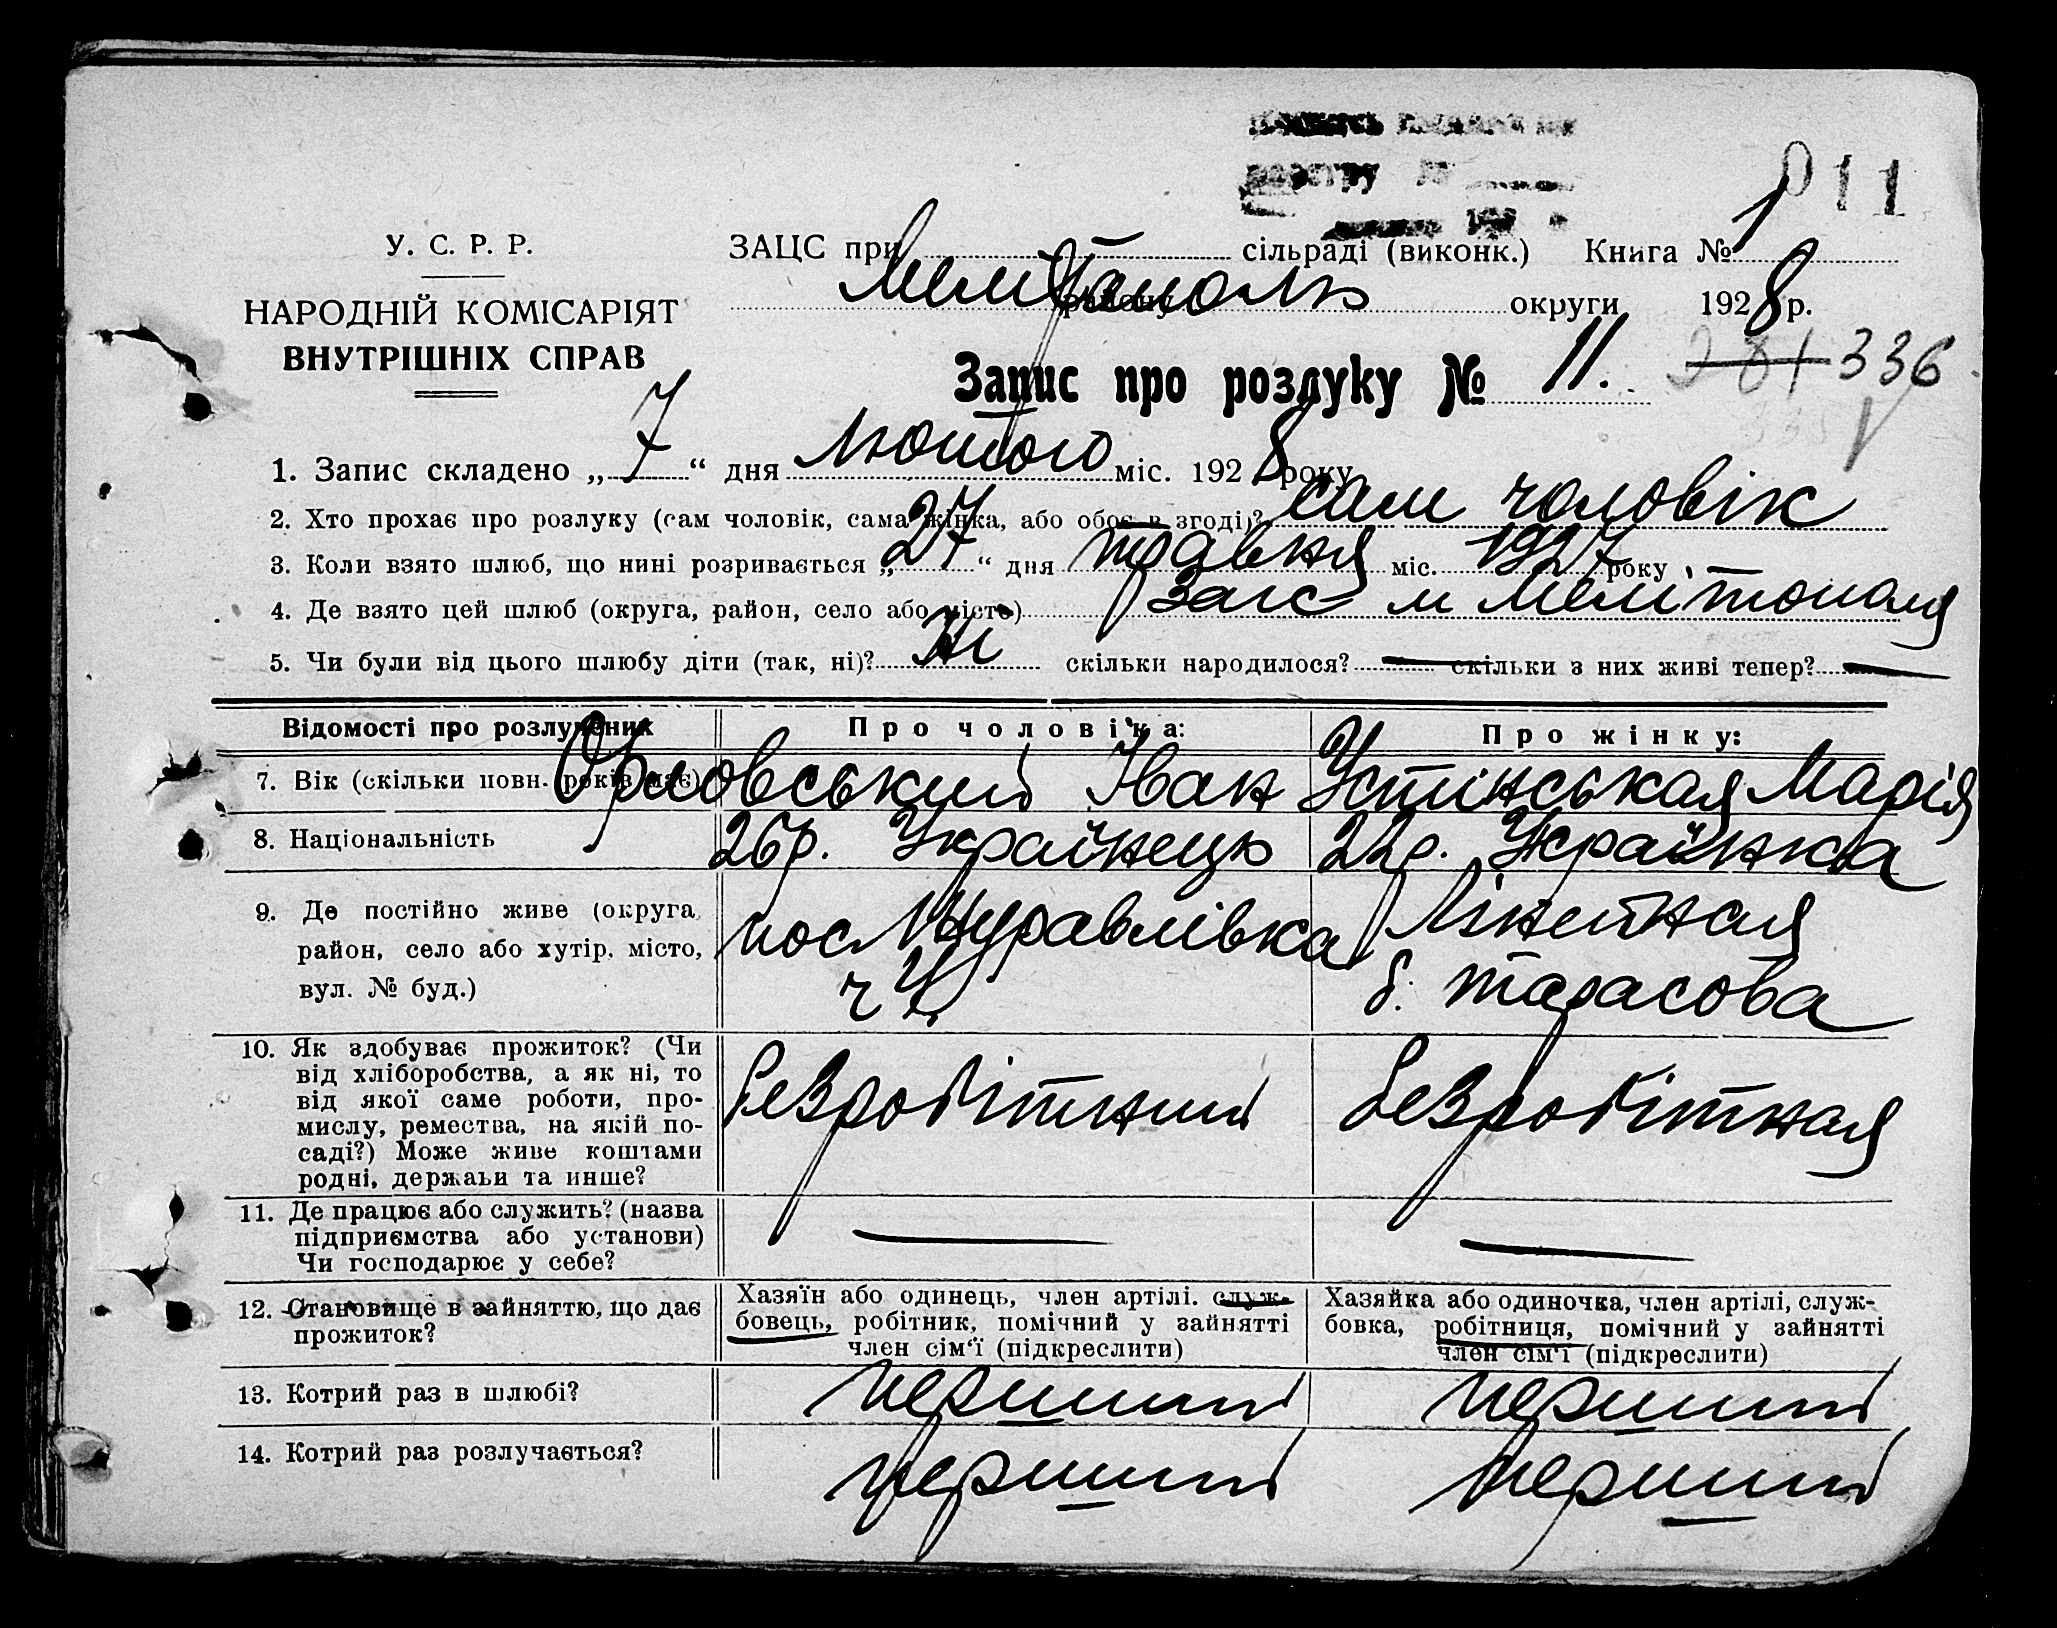 011
У. С. Р. Р.
НАРОДНІЙ КОМІСАРІЯТ
ВНУТРІШНІХ СПРАВ
ЗАЦС при сільраді (виконк.) Книга № 1
Мелітополь району округи 1928 р.
Запис про розлуку № 11. 281 336
1. Запис складено „7“ дня лютого міс. 1928 року
2. Хто прохає про розлуку (сам чоловік, сама жінка, або обоє в згоді)? сам чоловік
3. Коли взято шлюб, що нині розривається „27“ дня травня міс. 1927 року
4. Де взято цей шлюб (округа, район, село або місто) Загс м Мелітополя
5. Чи були від цього шлюбу діти (так, ні)? Ні скільки народилося? — скільки з них живі тепер? —
Відомості про розлучених Про чоловіка: Про жінку:
7. Вік (скільки повн. років має) Орловський Іван Устінськая Марія
8. Національність 26р. Українець 22р. Українка
9. Де постійно живе (округа, район, село або хутір, місто, вул. № буд.)
пос Журавлівка
ч 4
Лінейная
б. тарасова
10. Як здобуває прожиток? (Чи
від хліборобства, а як ні, то
від якої саме роботи, про-
мислу, ремества, на якій по-
саді?) Може живе коштами
родні, держави та инше?
безробітний безробітная
11. Де працює або служить? (назва
підприємства або установи)
Чи господарює у себе?
— —
12. Становище в зайняттю, що дає
прожиток?
Хазяїн або одинець, член артілі, служ-
бовець, робітник, помічний у зайнятті
член сім'ї (підкреслити)
Хазяйка або одиночка, член артілі, служ-
бовка, робітниця, помічний у зайнятті
член сім'ї (підкреслити)
13. Котрий раз в шлюбі? перший перший
14. Котрий раз розлучається? перший перший